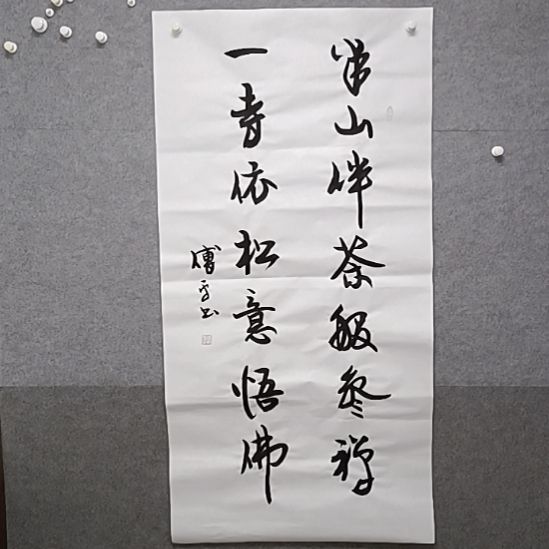 半山伴茶般参禅
一寺依松意悟佛
傅 书